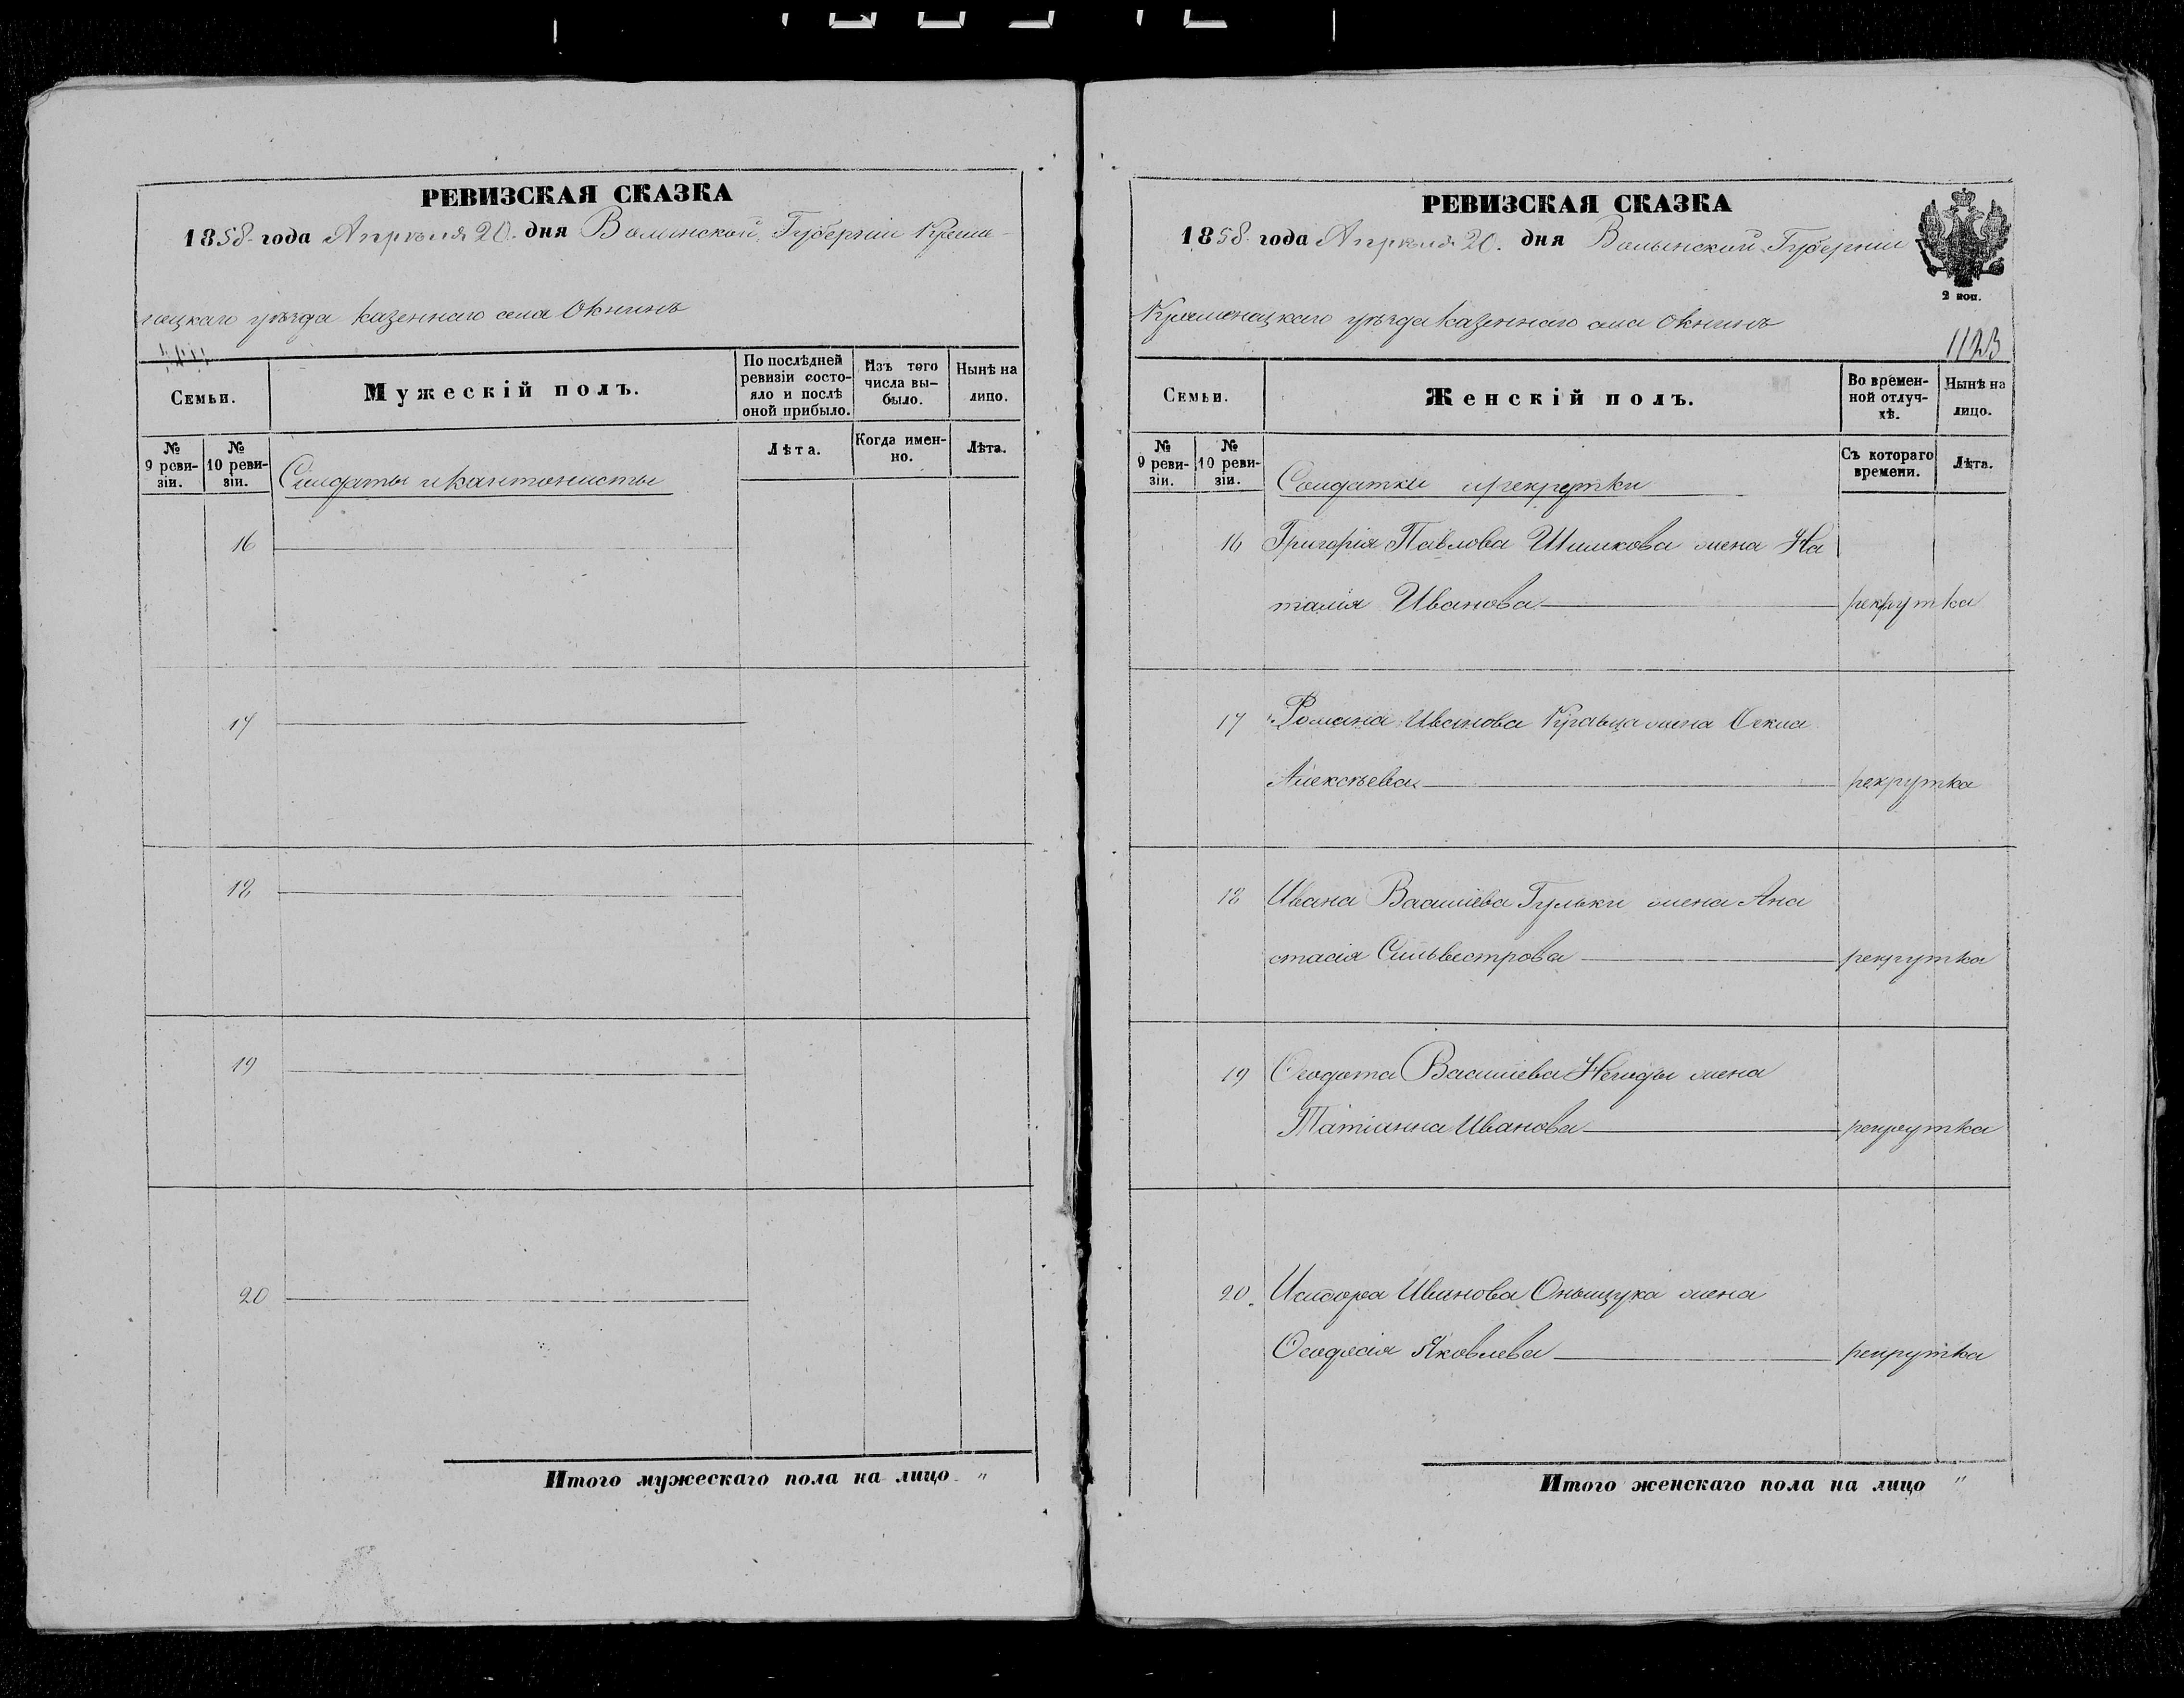 РЕВИЗСКАЯ СКАЗКА
1858 года Апрѣля 20. дня Волынской Губерніи Креме-
нецкаго уѣзда казеннаго села Окнинъ
Семьи.
Мужескій полъ.
По послѣдней ревизіи состояло и послѣ оной прибыло.
Изъ того числа выбыло.
Нынѣ на лицо.
№ 9 ревизіи.
№ 10 ревизіи.
Солдаты и кантонисты
Лѣта.
Когда именно.
Лѣта.
16
17
18
19
20
Итого мужескаго пола на лицо "
РЕВИЗСКАЯ СКАЗКА
1858 года Апрѣля 20. дня Волынской Губерніи
2 коп.
Кременецкаго уѣзда казеннаго села Окнинъ
1123
Семьи.
Женскій полъ.
Во временной отлучкѣ.
Нынѣ на лицо.
№ 9 ревизіи.
№ 10 ревизіи.
Солдатки и рекрутки
Съ котораго времени.
Лѣта.
16 Григорія Павлова Шишкова жена На
талія Иванова рекрутка
17 Романа Иванова Кравца жена
Алексѣева рекрутка
18 Ивана Василіева Гульки жена Ана
стасія Сильвестрова рекрутка
19 Ѳеодота Василіева Негоды жена
Татіанна Иванова рекрутка
20. Исидора Иванова Оныщука жена
Ѳеодосія Яковлева рекрутка
Итого женскаго пола на лицо "